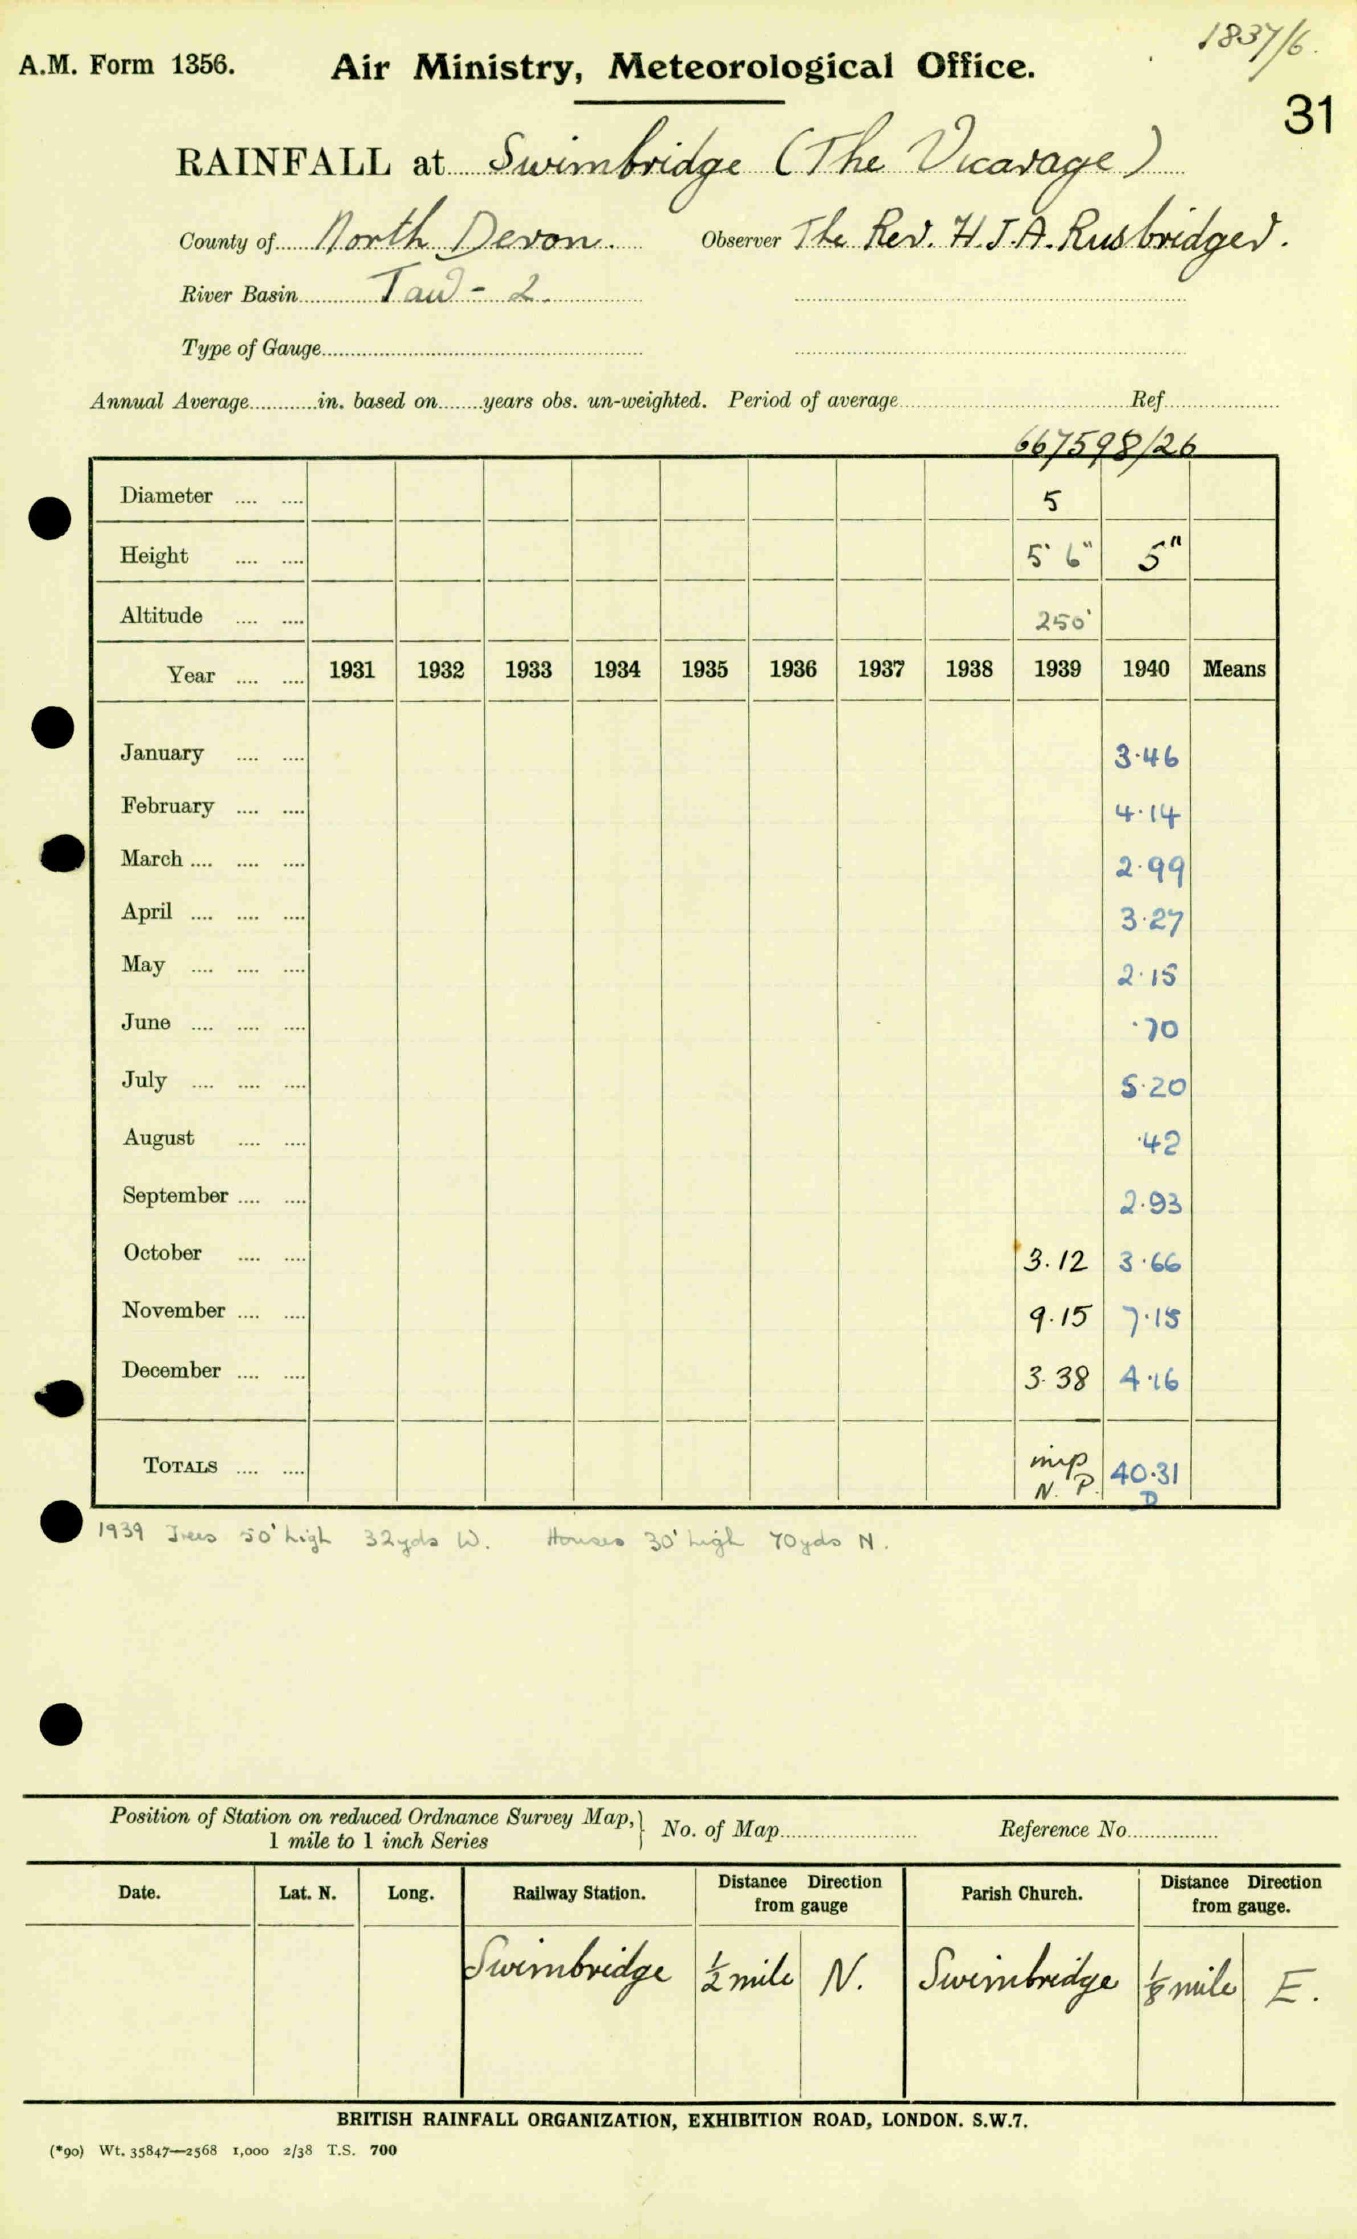 1837/6.
A.M. Form 1356. Air Ministry, Meteorological Office.
31
RAINFALL at Swimbridge (The Vicarage)
County of North Devon. Observer The Rev. H.J.A. Rusbridger.
River Basin Taw - 2.
Type of Gauge
Annual Average in. based on years obs. un-weighted. Period of average Ref
667598/26
Diameter 5
Height 5' 6" 5"
Altitude 250'
Year 1931 1932 1933 1934 1935 1936 1937 1938 1939 1940 Means
January 3·46
February 4·14
March 2·99
April 3·27
May 2·15
June ·70
July 5·20
August ·42
September 2·93
October 3.12 3·66
November 9.15 7·15
December 3.38 4·16
TOTALS imp 40·31
N. P. D
1939 Trees 50' high 32yds W. Houses 30' high 70yds N.
Position of Station on reduced Ordnance Survey Map, } No. of Map Reference No
1 mile to 1 inch Series
Date. Lat. N. Long. Railway Station. Distance Direction from gauge Parish Church. Distance Direction from gauge.
Swimbridge ½ mile N. Swimbridge ⅛ mile E.
BRITISH RAINFALL ORGANIZATION, EXHIBITION ROAD, LONDON. S.W.7.
(*90) Wt. 35847—2568 1,000 2/38 T.S. 700